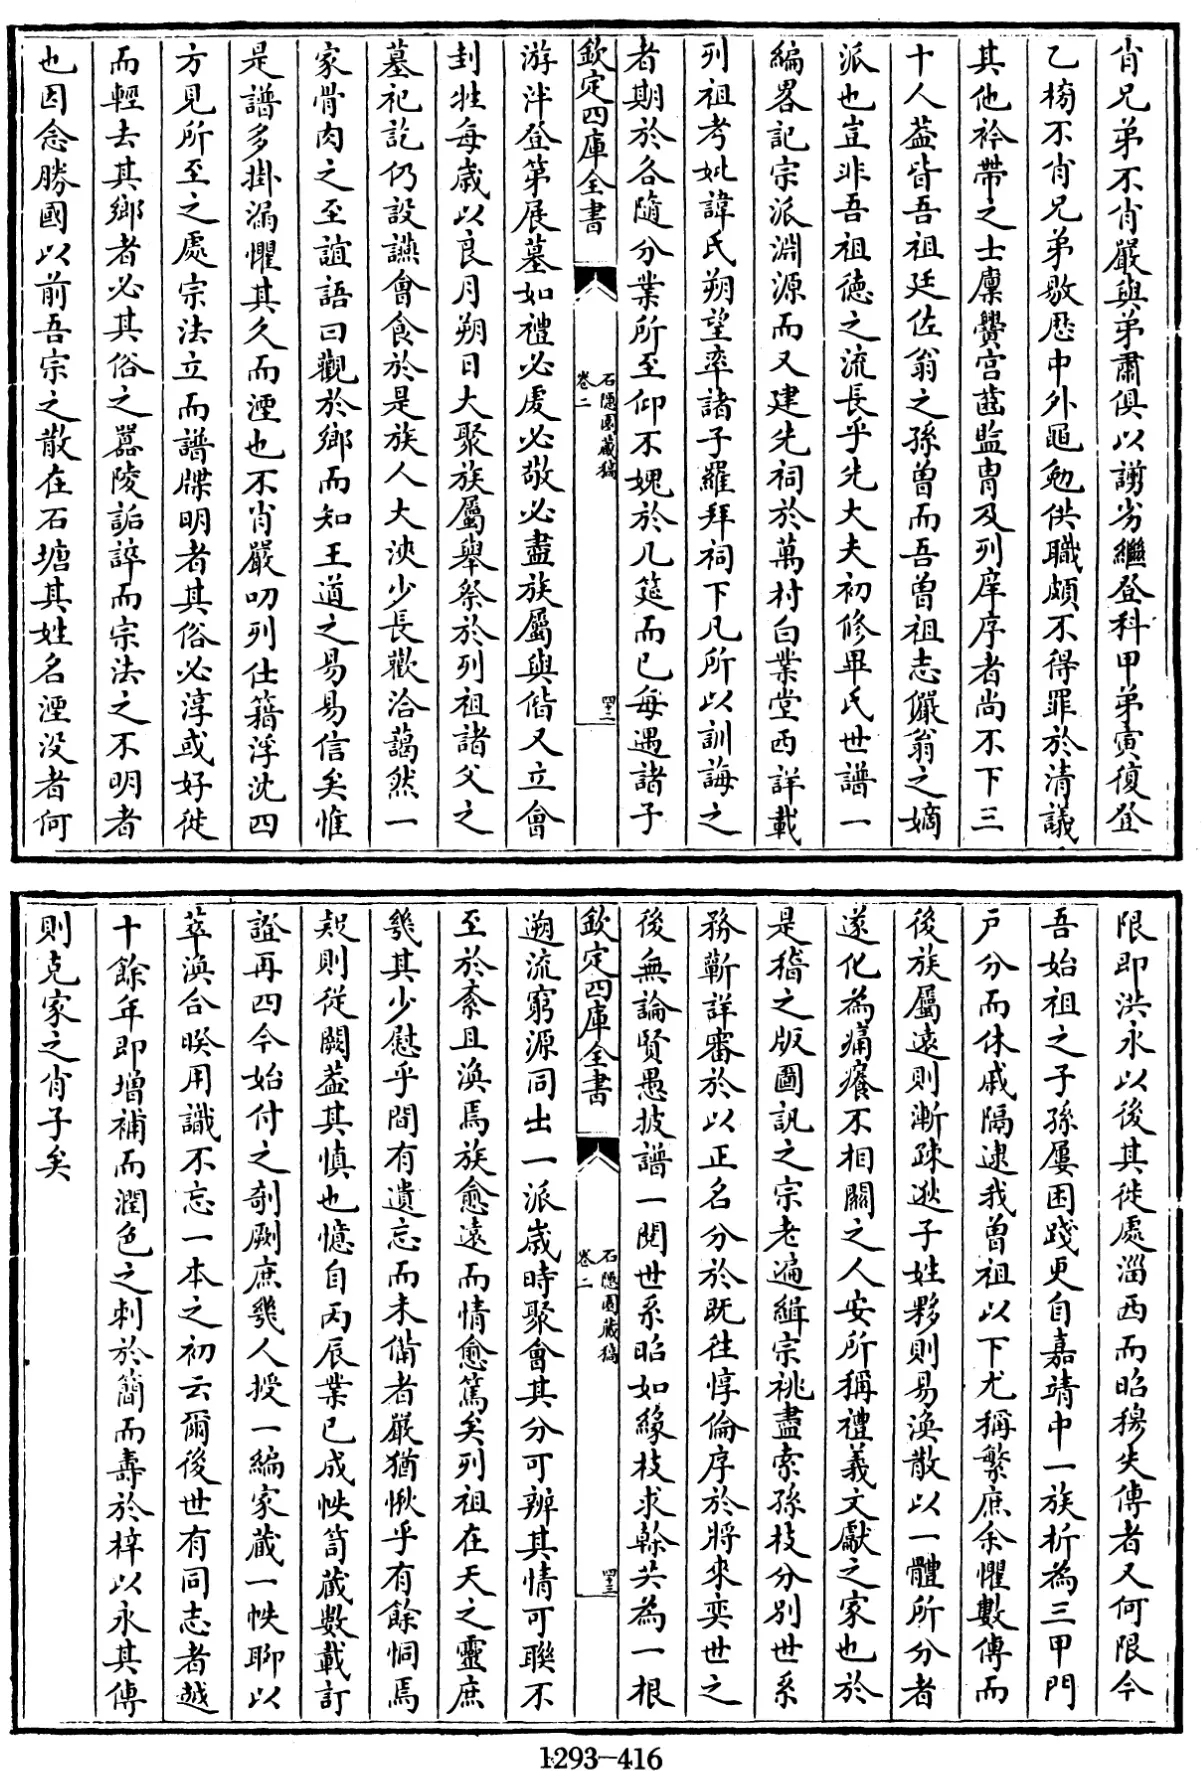 肯兄弟不肖嚴與弟肅俱以謭劣繼登科甲弟寅復登
乙榜不肖兄弟敭歴中外黽勉供職頗不得罪於清議
其他衿帶之士廩黌宫茁監胄及列庠序者尚不下三
十人葢皆吾祖廷佐翁之孫曽而吾曽祖志儼翁之嫡
派也豈非吾祖徳之流長乎先大夫初修畢氏世譜一
編畧記宗派淵源而又建先祠於萬村白業堂西詳載
列祖考妣諱氏朔望率諸子羅拜祠下凡所以訓誨之
者期於各隨分業所至仰不媿於几筵而已每遇諸子
欽定四庫全書
石隱園藏稿
卷二
四十二
游泮登第展墓如禮必䖍必敬必盡族屬與偕又立會
封牲每歳以良月朔日大聚族屬舉祭於列祖諸父之
墓祀訖仍設讌會食於是族人大浹少長歡洽藹然一
家骨肉之至誼語曰觀於鄉而知王道之易易信矣惟
是譜多掛漏懼其久而湮也不肖嚴叨列仕籍浮沈四
方見所至之處宗法立而譜牒明者其俗必淳或好徙
而輕去其鄉者必其俗之囂陵詬誶而宗法之不明者
也因念勝國以前吾宗之散在石塘其姓名湮沒者何
限即洪永以後其徙處淄西而昭穆失傳者又何限今
吾始祖之子孫屢困踐更自嘉靖中一族析為三甲門
户分而休戚隔逮我曽祖以下尤稱繁庶余懼數傳而
後族屬遠則漸疎逖子姓夥則易渙散以一體所分者
遂化為痛癢不相關之人安所稱禮義文獻之家也於
是稽之版圖訊之宗老遍緝宗祧盡索孫枝分別世系
務蘄詳審於以正名分於既往惇倫序於將來奕世之
後無論賢愚披譜一閱世系昭如緣枝求榦共為一根
欽定四庫全書
石隱園藏稿
卷二
四十三
遡流窮源同出一派歳時聚會其分可辨其情可聯不
至於紊且渙焉族愈遠而情愈篤矣列祖在天之靈庶
幾其少慰乎間有遺忘而未備者嚴猶愀乎有餘恫焉
疑則從闕葢其慎也憶自丙辰業已成帙笥藏數載訂
證再四今始付之剞劂庶幾人授一編家藏一帙聊以
萃渙合暌用識不忘一本之初云爾後世有同志者越
十餘年即增補而潤色之刺於簡而壽於梓以永其傳
則克家之肖子矣
1293-416